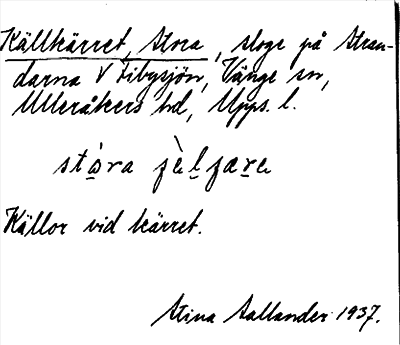 Källkärret, Stora, sloge på Stran-
darna V Fibysjön, Vänge sn,
Ulleråkers hd, Upps. l.
stò̱ra ɟè̱l̠ɟære̱
Källor vid kärret.
Stina Sallander 1937.